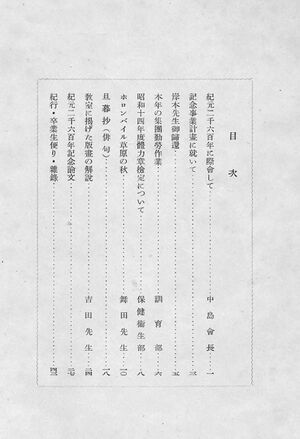 目次
紀元二千六百年に際會して 中島會長 一
記念事業計畫に就いて 三
岸本先生御歸還 五
本年の集團勤勞作業 訓育部 六
昭和十四年度體力章檢定について 保健衞生部 八
ホロンバイル草原の秋 舞田先生 一〇
旦暮抄（俳句） 一八
教室に揭げた版畫の解說 吉田先生 二四
紀元二千六百年記念論文 二七
紀行・卒業生便り・雜錄 四三